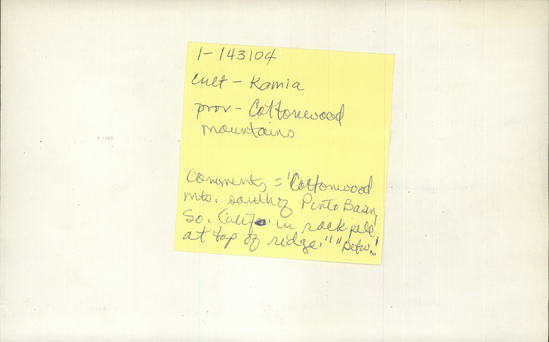 1-143104
cult - Kamia
prov - Cottonwood
mountains
comments = 'Cottonwood
mts. south of Pinto Basin,
So. Calif. in rock pile
at top of ridge.'